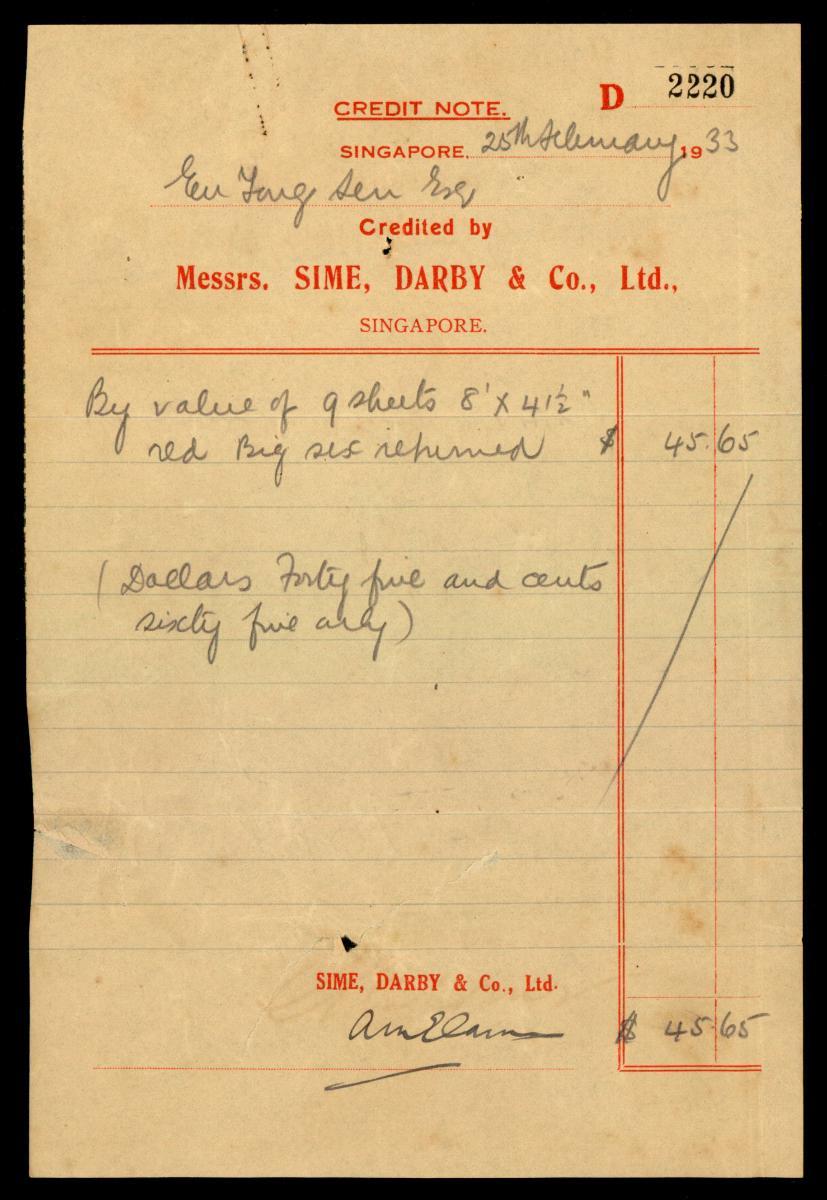 D 2220
CREDIT NOTE.
SINGAPORE, 25th February 1933
Eu Tong Sen Esq
Credited by
Messrs. SIME, DARBY & Co., Ltd.,
SINGAPORE.
By value of 9 sheets 8' X 4 1½"
red Big six returned $ 45.65
(Dollars Forty five and cents
sixty five only)
SIME, DARBY & Co., Ltd.
$ 45.65